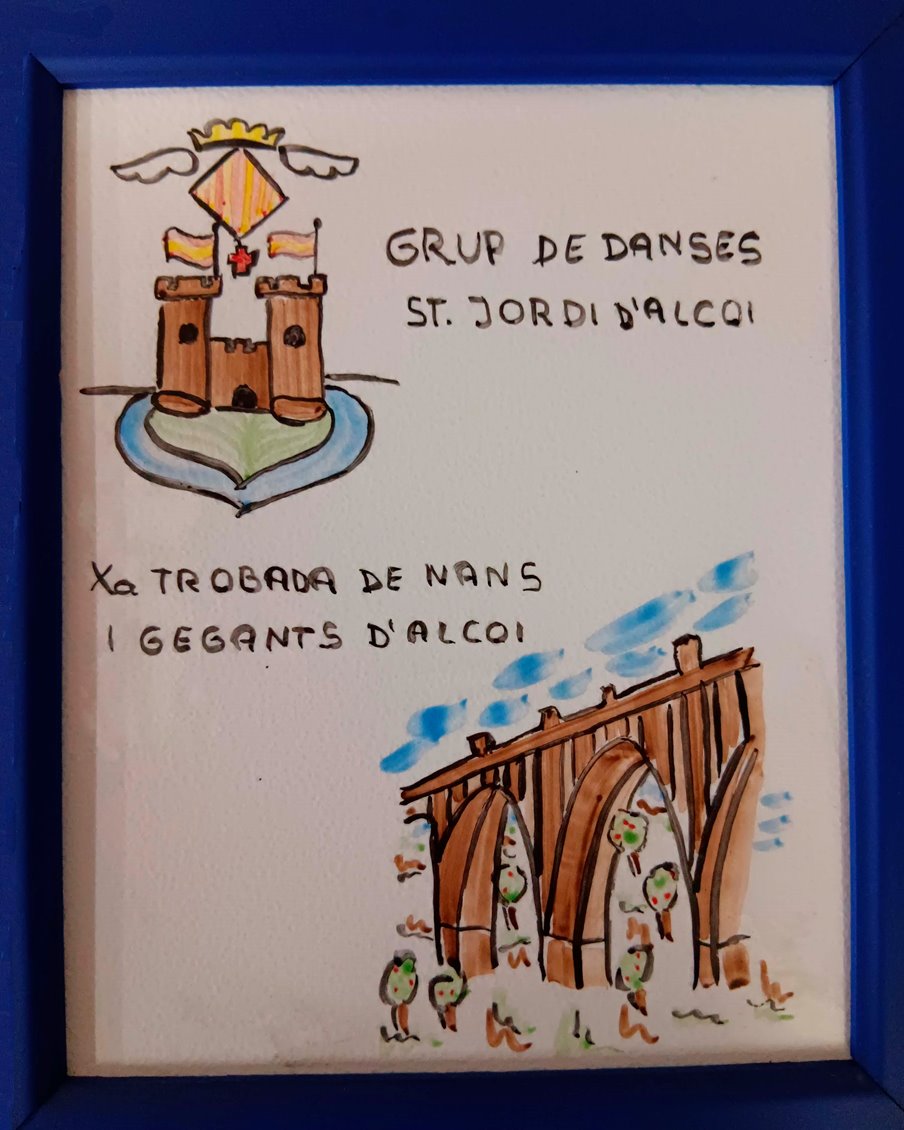 GRUP DE DANSES
ST. JORDI D'ALCOI
Xa TROBADA DE NANS
I GEGANTS D'ALCOI